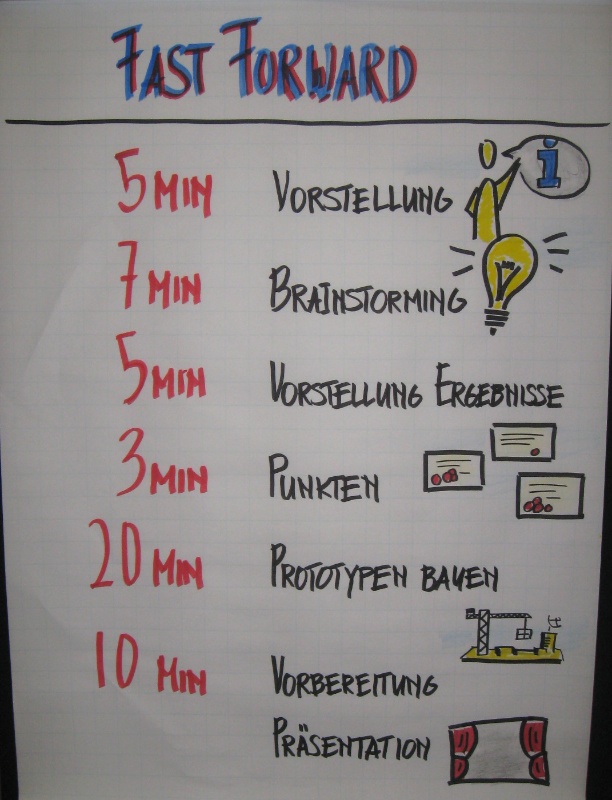 FAST FORWARD
i
5 MIN VORSTELLUNG
7 MIN BRAINSTORMING
5 MIN VORSTELLUNG ERGEBNISSE
3 MIN PUNKTEN
20 MIN PROTOTYPEN BAUEN
10 MIN VORBEREITUNG
PRÄSENTATION